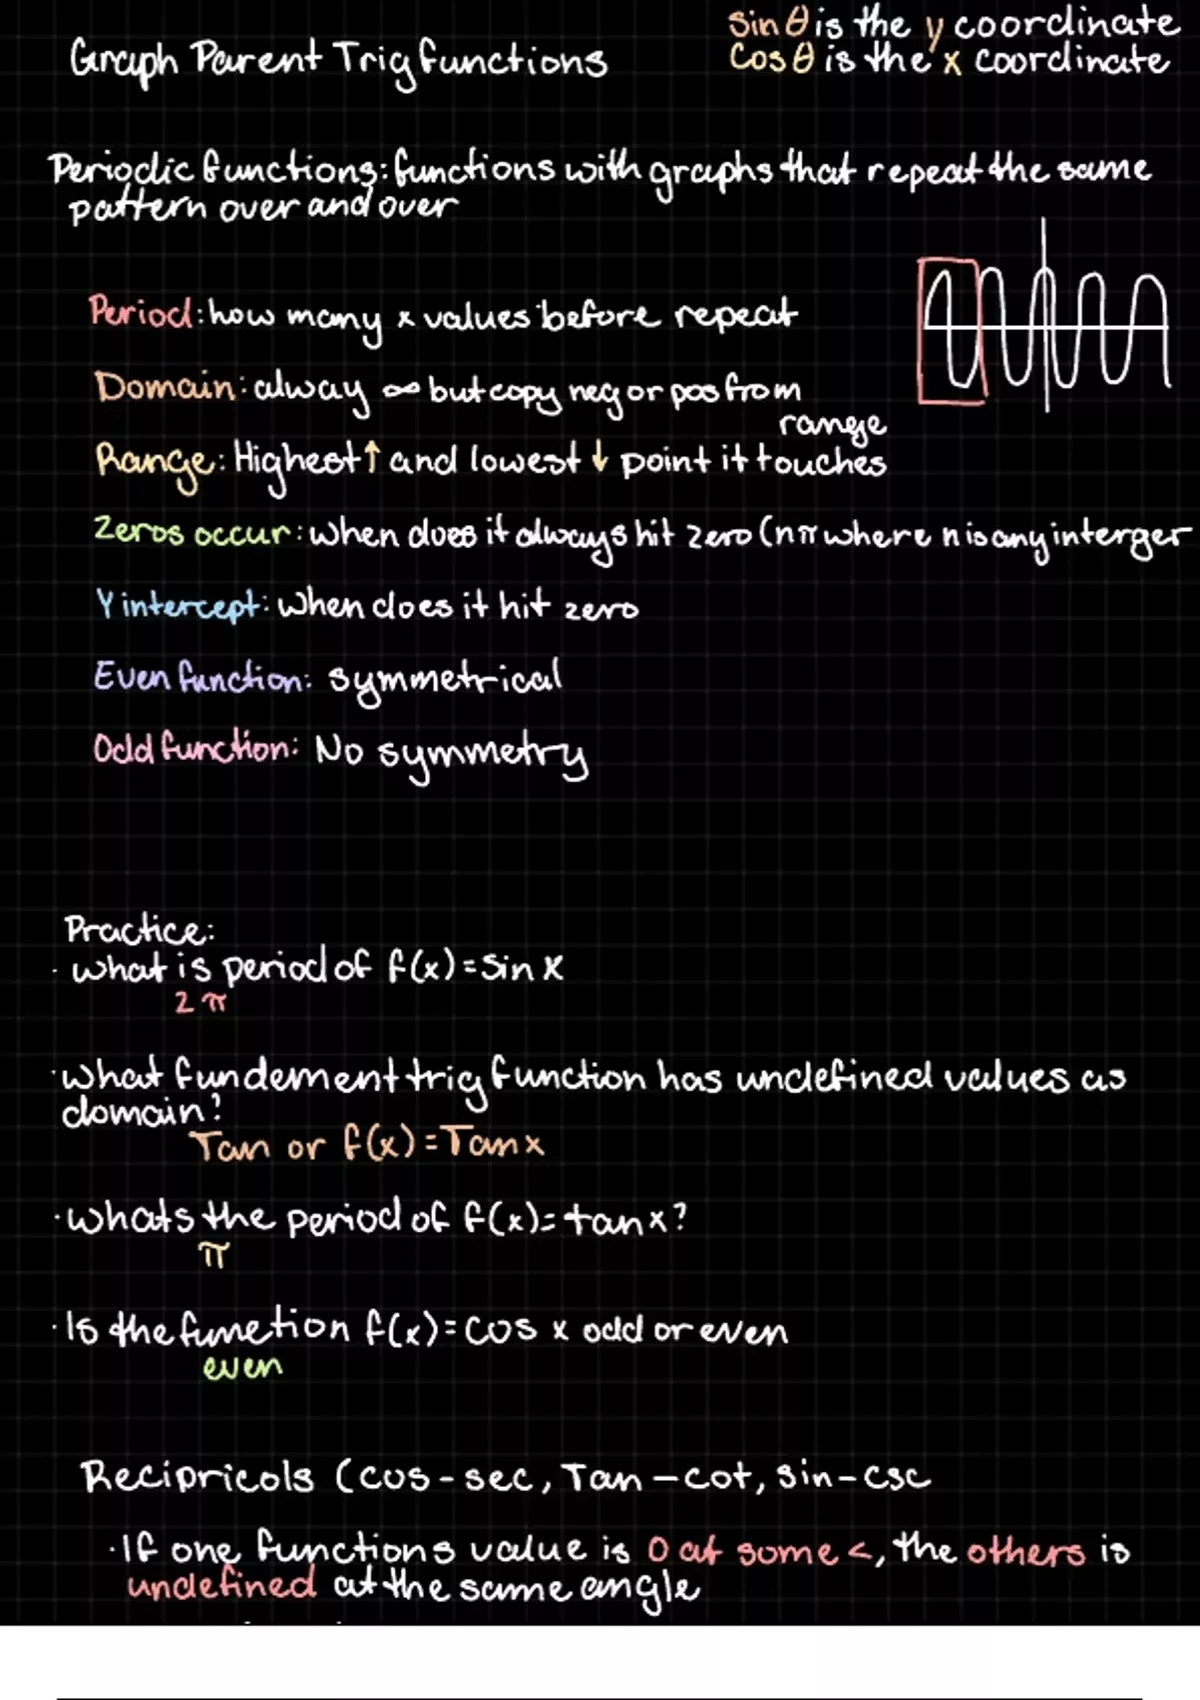 sin θ is the y coordinate
Graph Parent Trig functions
Cos θ is the x coordinate
Periodic functions: functions with graphs that repeat the same
pattern over and over
Period: how many x values before repeat
Domain: alway ∞ but copy neg or pos from
range
Range: Highest ↑ and lowest ↓ point it touches
Zeros occur: when does it always hit zero (nπ where n is any interger
Y intercept: when does it hit zero
Even function: symmetrical
Odd function: No symmetry
Practice:
· what is period of f(x) = sin x
2π
· what fundement trig function has undefined values as
domain?
Tan or f(x) = Tan x
· whats the period of f(x) = tan x?
π
· Is the function f(x) = cos x odd or even
even
Recipricols (cos - sec, Tan - cot, sin - csc
· If one functions value is 0 at some <, the others is
undefined at the same angle